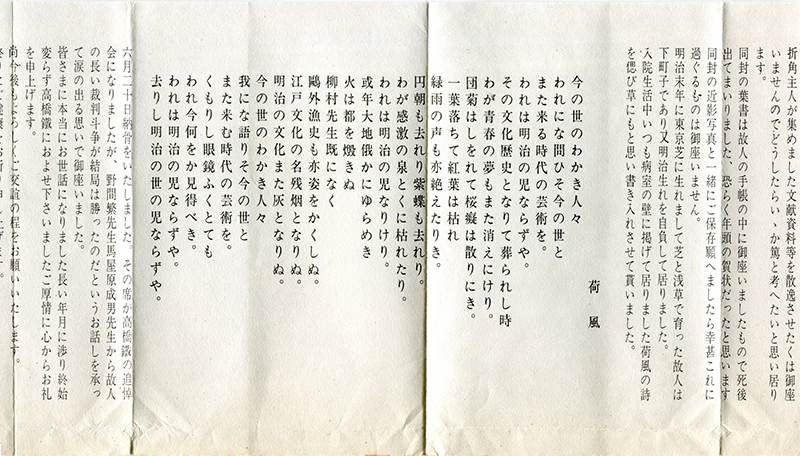 折角主人が集めました文献資料等を散逸させたくは御座
いませんのでどうしたらいゝか篤と考へたいと思い居り
ます。
同封の葉書は故人の手帳の中に御座いましたもので死後
出てまいりました、恐らく年頭の賀状だったと思います
同封の近影写真と一緒にご保存願へましたら幸甚これに
過ぐるものは御座いません。
明治末年に東京芝に生れまして芝と浅草で育った故人は
下町子であり又明治生れを自負して居りました。
入院生活中いつも病室の壁に掲げて居りました荷風の詩
を偲び草にもと思い書き入れさせて貰いました。
荷風
今の世のわかき人々
われにな問ひそ今の世と
また来る時代の芸術を。
われは明治の児ならずや。
その文化歴史となりて葬られし時
わが青春の夢もまた消えにけり。
団菊はしをれて桜癡は散りにき。
一葉落ちて紅葉は枯れ
緑雨の声も亦絶えたりき。
円朝も去れり紫蝶も去れり。
わが感激の泉とくに枯れたり。
われは明治の児なりけり。
或年大地俄かにゆらめき
火は都を燬きぬ
柳村先生既になく
鷗外漁史も亦姿をかくしぬ。
江戸文化の名残烟となりぬ。
明治の文化また灰となりぬ。
今の世のわかき人々
我にな語りそ今の世と
また来む時代の芸術を。
くもりし眼鏡ふくとても
われ今何をか見得べき。
われは明治の児ならずや。
去りし明治の世の児ならずや。
六月二十日納骨をいたしました。その席が高橋鐵の追悼
会になりましたが、野間繁先生馬屋原成男先生から故人
の長い裁判斗争が結局は勝ったのだというお話しを承っ
て涙の出る思いで御座いました。
皆さまに本当にお世話になりました長い年月に渉り終始
変らず高橋鐵におよせ下さいましたご厚情に心からお礼
を申上げます。
尚今後もよろしくご交誼の程をお願いいたします。